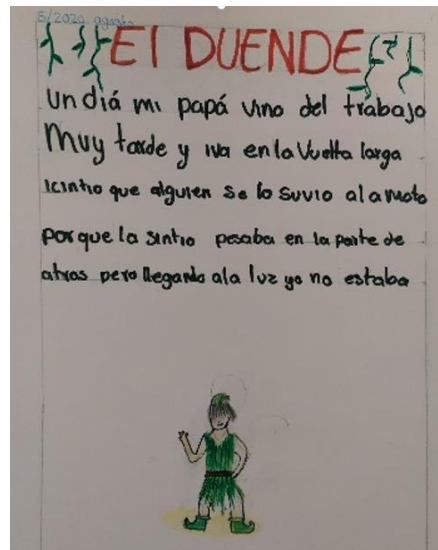 5/2020 agosto
El DUENDE
un diá mi papá vino del trabajo
Muy tarde y iva en la Vuelta larga
icintio que alguien se lo suvio ala moto
porque la sintio pesaba en la parte de
atras pero llegando ala luz ya no estaba